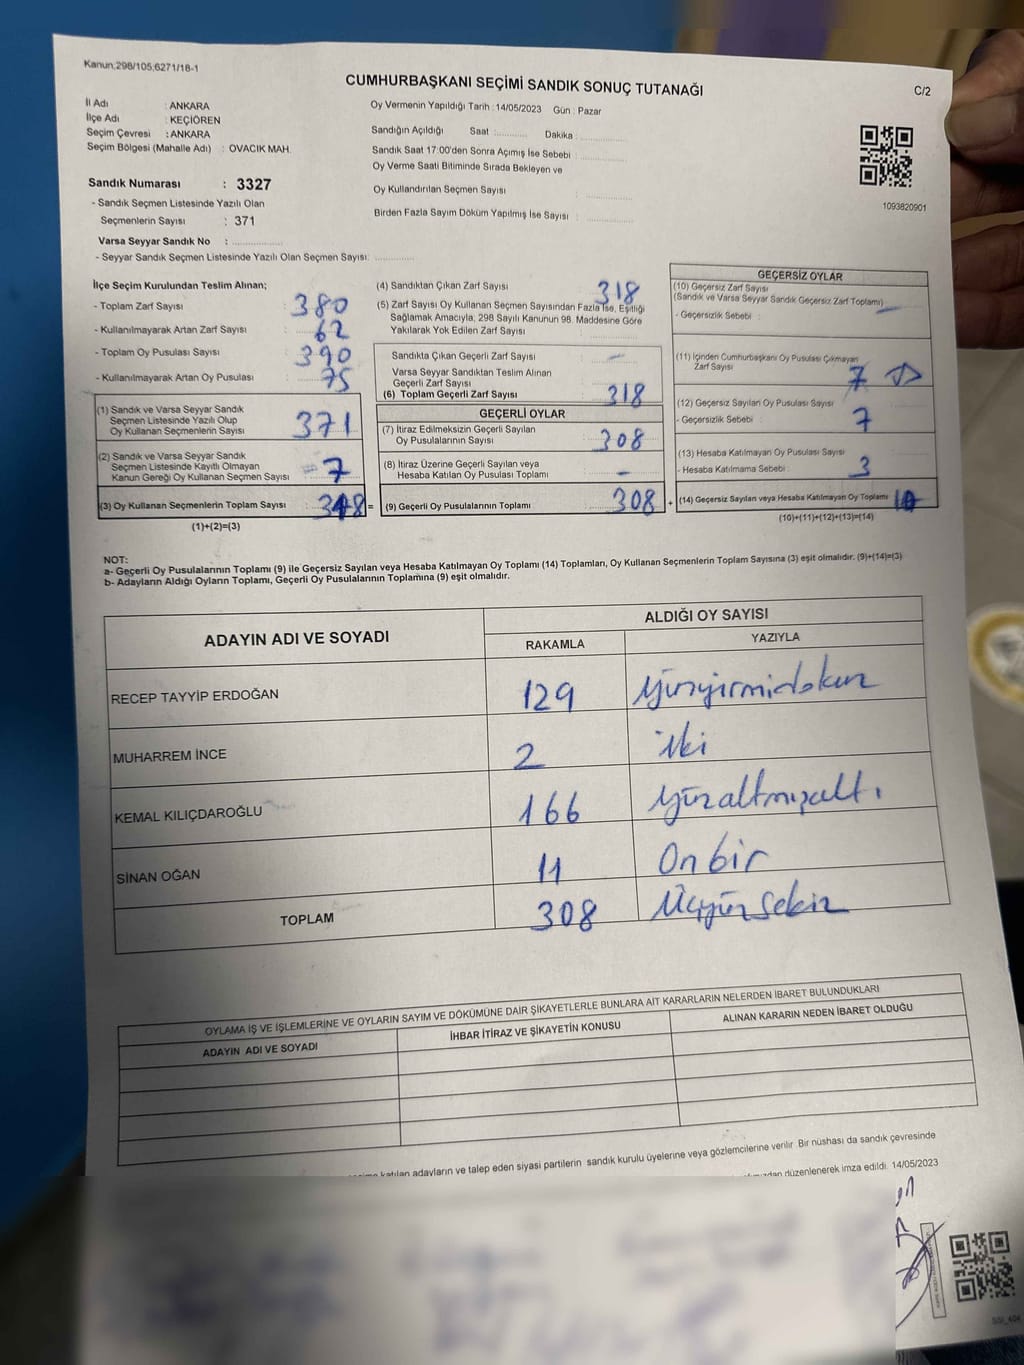 Kanun;298/105,6271/18-1
CUMHURBAŞKANI SEÇİMİ SANDIK SONUÇ TUTANAĞI
C/2
İl Adı : ANKARA
İlçe Adı : KEÇİÖREN
Seçim Çevresi : ANKARA
Seçim Bölgesi (Mahalle Adı) : OVACIK MAH.
Oy Vermenin Yapıldığı Tarih : 14/05/2023 Gün : Pazar
Sandığın Açıldığı Saat :........... Dakika :...........
Sandık Saat 17:00'den Sonra Açımış İse Sebebi :...........
Oy Verme Saati Bitiminde Sırada Bekleyen ve
Oy Kullandırılan Seçmen Sayısı :...........
Birden Fazla Sayım Döküm Yapılmış İse Sayısı :...........
1093820901
Sandık Numarası : 3327
- Sandık Seçmen Listesinde Yazılı Olan
Seçmenlerin Sayısı : 371
Varsa Seyyar Sandık No : ...........
- Seyyar Sandık Seçmen Listesinde Yazılı Olan Seçmen Sayısı: ...........
İlçe Seçim Kurulundan Teslim Alınan;
- Toplam Zarf Sayısı : 380
- Kullanılmayarak Artan Zarf Sayısı : 62
- Toplam Oy Pusulası Sayısı : 390
- Kullanılmayarak Artan Oy Pusulası : 75
(1) Sandık ve Varsa Seyyar Sandık
Seçmen Listesinde Yazılı Olup
Oy Kullanan Seçmenlerin Sayısı : 371
(2) Sandık ve Varsa Seyyar Sandık
Seçmen Listesinde Kayıtlı Olmayan
Kanun Gereği Oy Kullanan Seçmen Sayısı : 7
(3) Oy Kullanan Seçmenlerin Toplam Sayısı : =
(1)+(2)=(3)
(4) Sandıktan Çıkan Zarf Sayısı : 318
(5) Zarf Sayısı Oy Kullanan Seçmen Sayısından Fazla İse, Eşitliği
Sağlamak Amacıyla; 298 Sayılı Kanunun 98. Maddesine Göre
Yakılarak Yok Edilen Zarf Sayısı :...........
Sandıkta Çıkan Geçerli Zarf Sayısı : -
Varsa Seyyar Sandıktan Teslim Alınan
Geçerli Zarf Sayısı :
(6) Toplam Geçerli Zarf Sayısı : 318
GEÇERLİ OYLAR
(7) İtiraz Edilmeksizin Geçerli Sayılan
Oy Pusulalarının Sayısı : 308
(8) İtiraz Üzerine Geçerli Sayılan veya
Hesaba Katılan Oy Pusulası Toplamı : -
(9) Geçerli Oy Pusulalarının Toplamı : 308 +
GEÇERSİZ OYLAR
(10) Geçersiz Zarf Sayısı
(Sandık ve Varsa Seyyar Sandık Geçersiz Zarf Toplamı) -
- Geçersizlik Sebebi :
(11) İçinden Cumhurbaşkanı Oy Pusulası Çıkmayan
Zarf Sayısı : 7
(12) Geçersiz Sayılan Oy Pusulası Sayısı
- Geçersizlik Sebebi : 7
(13) Hesaba Katılmayan Oy Pusulası Sayısı
- Hesaba Katılmama Sebebi : 3
(14) Geçersiz Sayılan veya Hesaba Katılmayan Oy Toplamı : 10
(10)+(11)+(12)+(13)=(14)
NOT:
a- Geçerli Oy Pusulalarının Toplamı (9) ile Geçersiz Sayılan veya Hesaba Katılmayan Oy Toplamı (14) Toplamları, Oy Kullanan Seçmenlerin Toplam Sayısına (3) eşit olmalıdır. (9)+(14)=(3)
b- Adayların Aldığı Oyların Toplamı, Geçerli Oy Pusulalarının Toplamına (9) eşit olmalıdır.
ADAYIN ADI VE SOYADI
ALDIĞI OY SAYISI
RAKAMLA YAZIYLA
RECEP TAYYİP ERDOĞAN 129 yüzyirmidokuz
MUHARREM İNCE 2 iki
KEMAL KILIÇDAROĞLU 166 yüzaltmışaltı
SİNAN OĞAN 11 On bir
TOPLAM 308 Üçyüzsekiz
OYLAMA İŞ VE İŞLEMLERİNE VE OYLARIN SAYIM VE DÖKÜMÜNE DAİR ŞİKAYETLERLE BUNLARA AİT KARARLARIN NELERDEN İBARET BULUNDUKLARI
ADAYIN ADI VE SOYADI İHBAR İTİRAZ VE ŞİKAYETİN KONUSU ALINAN KARARIN NEDEN İBARET OLDUĞU
katılan adayların ve talep eden siyasi partilerin sandık kurulu üyelerine veya gözlemcilerine verilir. Bir nüshası da sandık çevresinde
düzenlenerek imza edildi. 14/05/2023